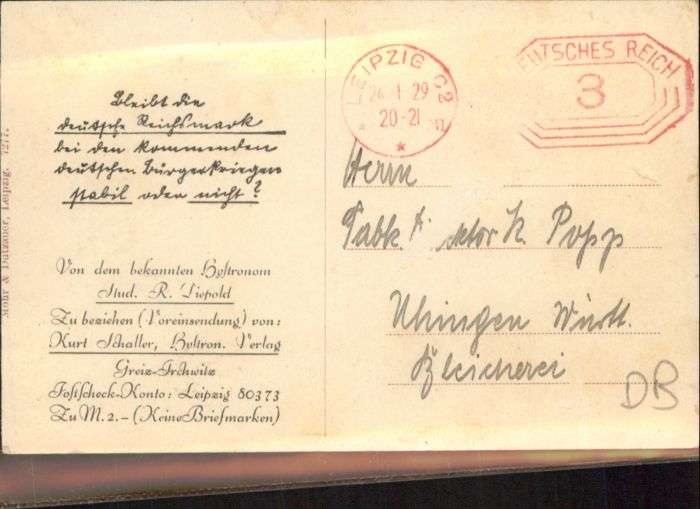 Bleibt die
deutsche Reichsmark
bei den kommenden
deutschen Bürgerkriegen
stabil oder nicht?
Von dem bekannten Hystronom
Stud. R. Liepold
Zu beziehen (Voreinsendung) von:
Kurt Schaller, Hystron. Verlag
Greiz-Irchwitz
Postscheck-Konto: Leipzig 80373
Zu M. 2.- (Keine Briefmarken)
Leipzig. 7277.
LEIPZIG C2
29
20-21
DEUTSCHES REICH
3
Herrn
K. Popp
Uhingen Württ.
Bleicherei
DB